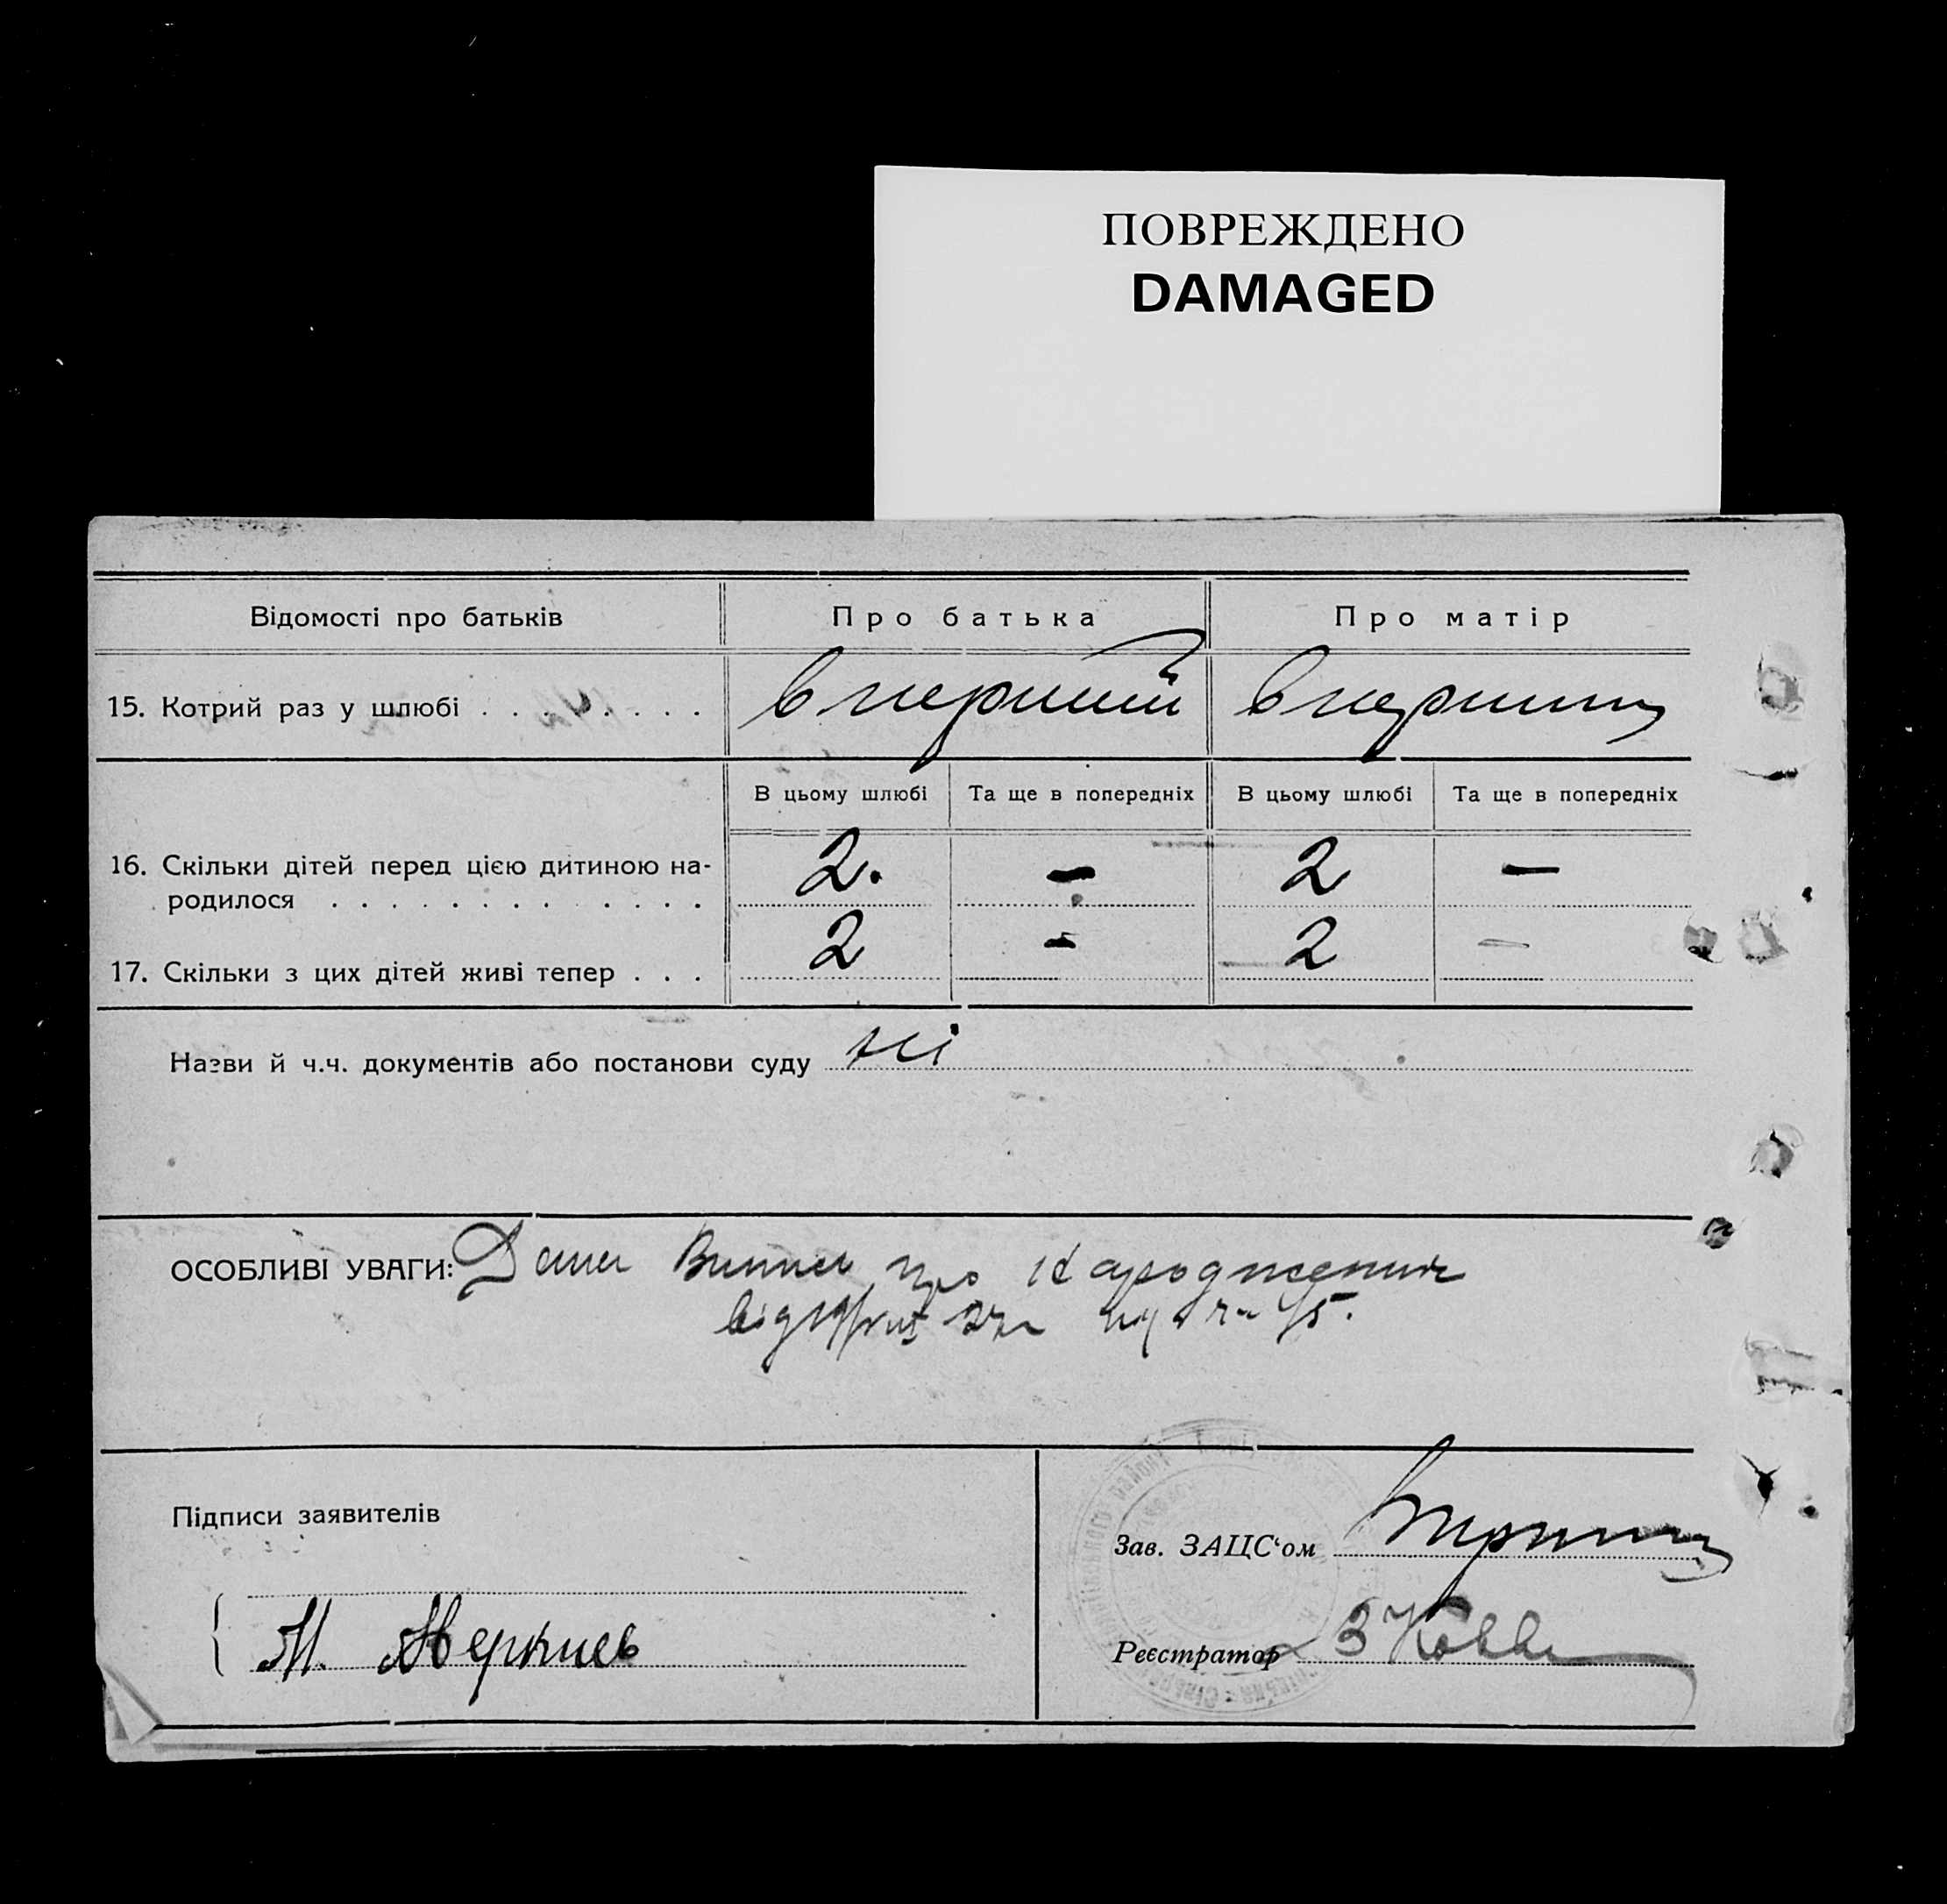 ПОВРЕЖДЕНО
DAMAGED
Відомості про батьків
Про батька
Про матір
15. Котрий раз у шлюбі . . . . . . . .
в перший
в перший
В цьому шлюбі
Та ще в попередніх
В цьому шлюбі
Та ще в попередніх
16. Скільки дітей перед цією дитиною на-
родилося . . . . . . . . . . . . .
2.
—
2
—
17. Скільки з цих дітей живі тепер . . .
2
-
2
—
Назви й ч.ч. документів або постанови суду ні
ОСОБЛИВІ УВАГИ: Дана Витяг про Народження
від
Підписи заявителів
Зав. ЗАЦС‘ом
М.
Реєстратор